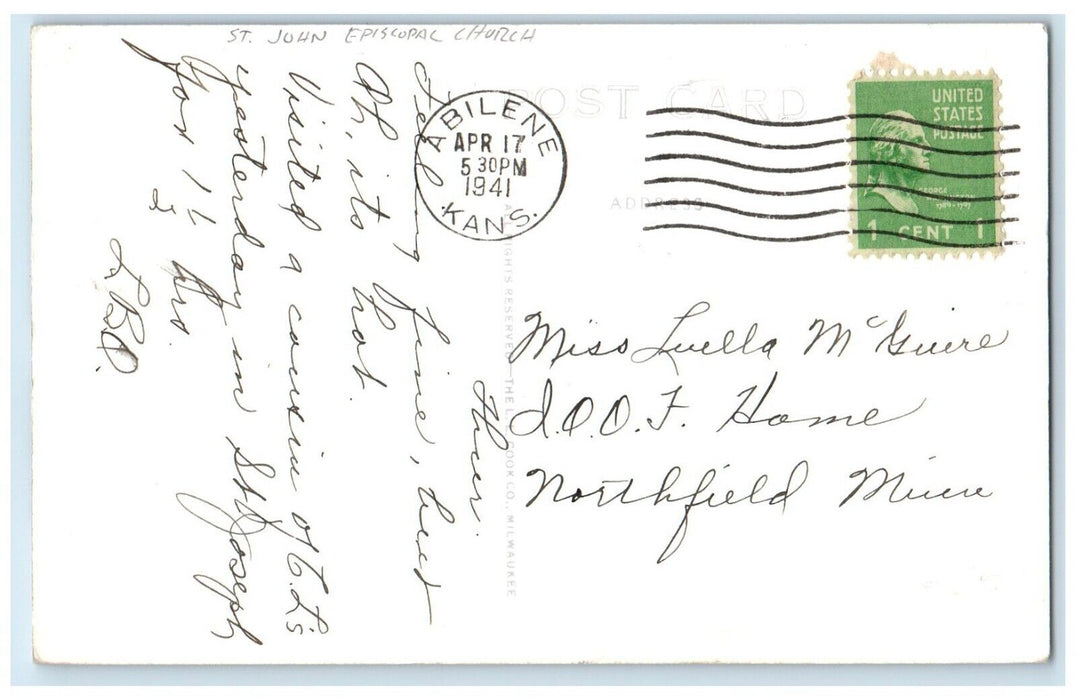 ST. JOHN EPISCOPAL CHURCH
POST CARD
ADDRESS
ABILENE
APR 17
5 30 PM
1941
KANS.
UNITED
STATES
POSTAGE
GEORGE
WASHINGTON
1789-1797
1 CENT 1
Thur.
Feeling fine, but
Oh, its hot.
Visited a cousin of C. L's
yesterday in St. Joseph
for 1 1/2 hrs.
L.B.P.
ALL RIGHTS RESERVED - THE L. L. COOK CO., MILWAUKEE
Miss Luella McGuire
I.O.O.F. Home
Northfield Minn